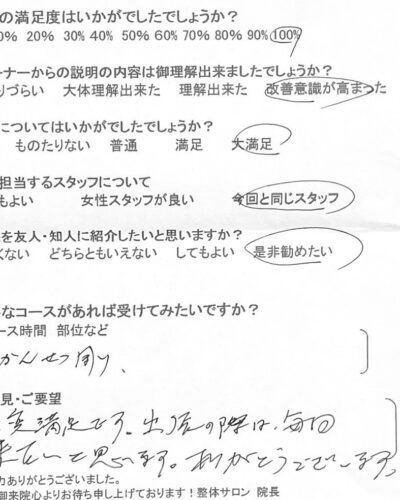 の満足度はいかがでしたでしょうか?
0% 20% 30% 40% 50% 60% 70% 80% 90% 100%
ーナーからの説明の内容は御理解出来ましたでしょうか?
りづらい 大体理解出来た 理解出来た 改善意識が高まった
についてはいかがでしたでしょうか?
ものたりない 普通 満足 大満足
担当するスタッフについて
もよい 女性スタッフが良い 今回と同じスタッフ
を友人・知人に紹介したいと思いますか?
くない どちらともいえない してもよい 是非勧めたい
なコースがあれば受けてみたいですか?
ース時間 部位など
かんせつ周り、
見・ご要望
変満足です。出張の際は、毎回
来たいと思います。ありがとうございます。
力ありがとうございました。
御来院心よりお待ち申し上げております!整体サロン 院長